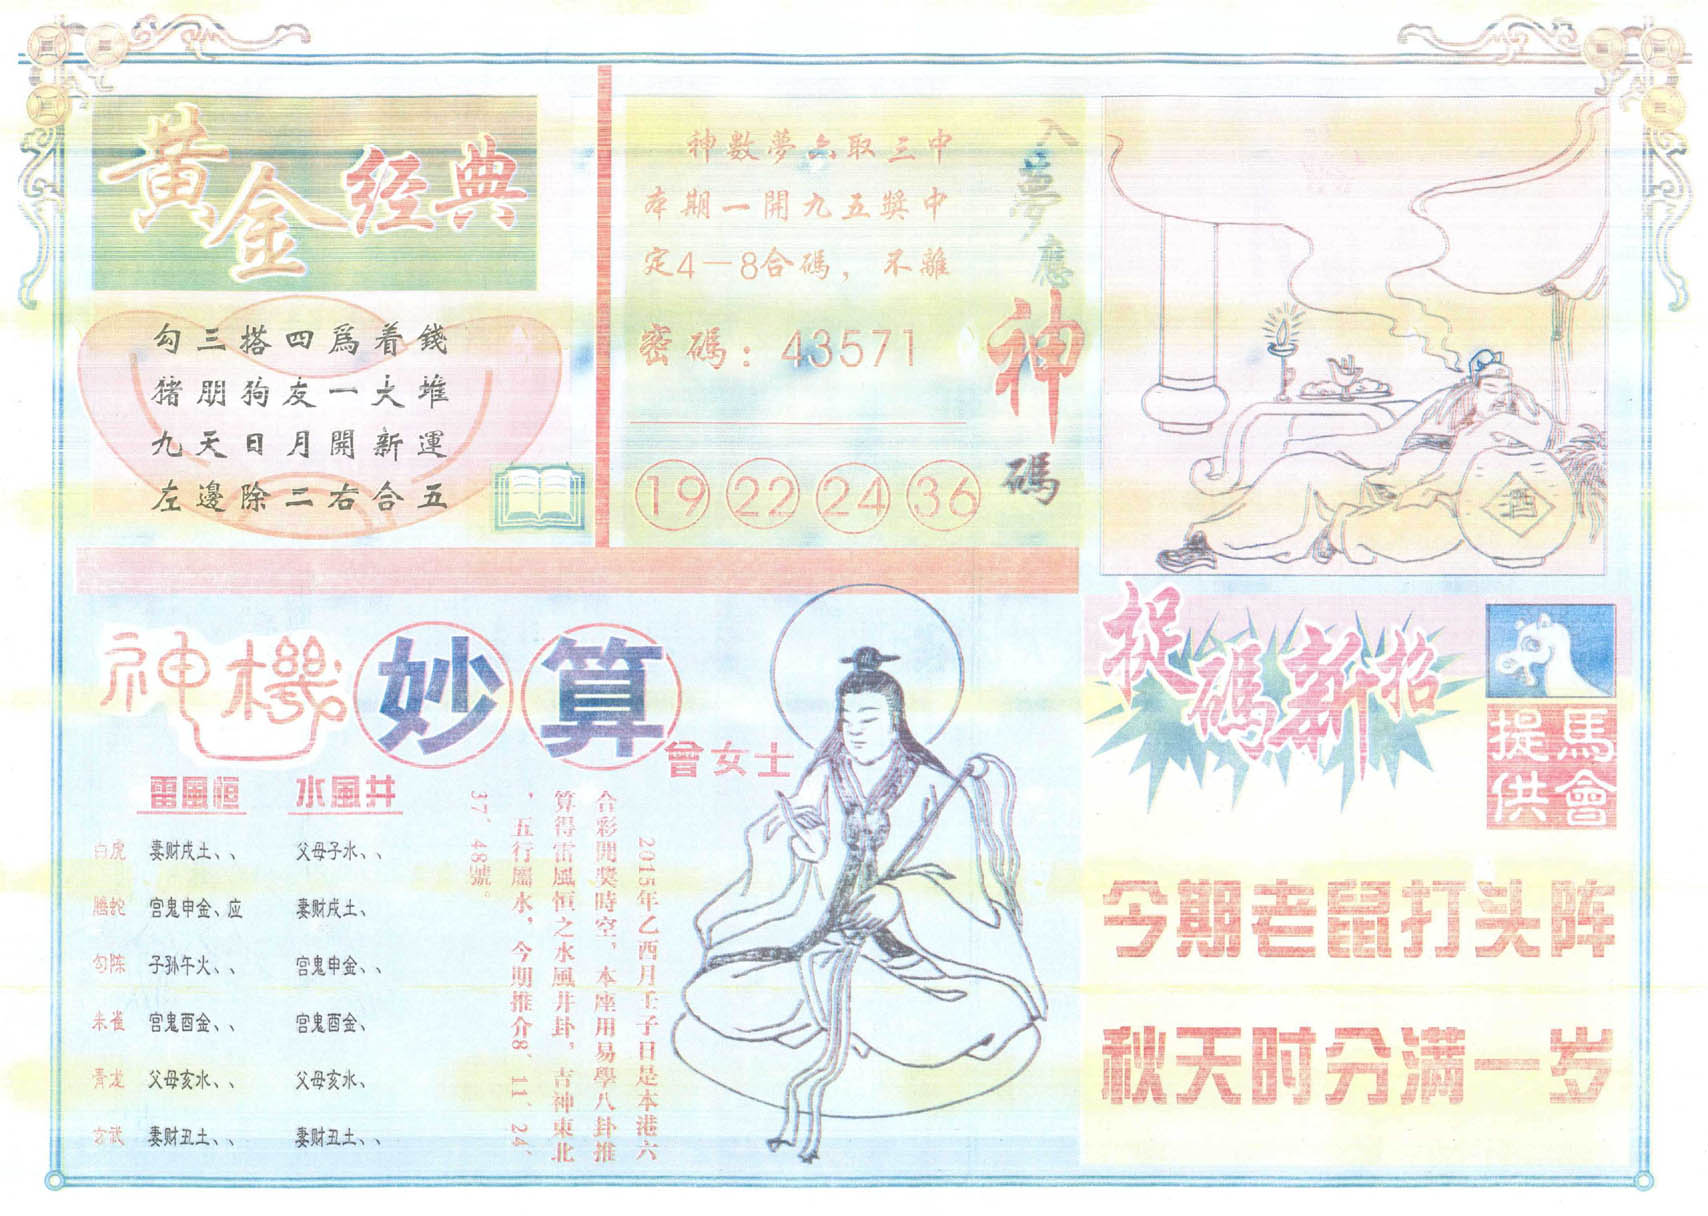 黄金经典
勾三搭四爲着錢
猪朋狗友一大堆
九天日月開新運
左邊除二右合五
神數夢六取三中
本期一開九五獎中
定4－8合碼，不離
密碼：43571
19 22 24 36
入夢應神碼
酒
神機妙算
曾女士
雷風恒 水風井
白虎 妻财戌土、、 父母子水、、
腾蛇 官鬼申金、应 妻财戌土、
勾陈 子孙午火、、 官鬼申金、、
朱雀 官鬼酉金、、 官鬼酉金、
青龙 父母亥水、、 父母亥水、
玄武 妻财丑土、、 妻财丑土、、
2015年乙酉月壬子日是本港六
合彩開獎時空，本座用易學八卦推
算得雷風恒之水風井卦，吉神東北
，五行屬水，今期推介8、11、24、
37、48號。
捉碼新招
馬會提供
今期老鼠打头阵
秋天时分满一岁